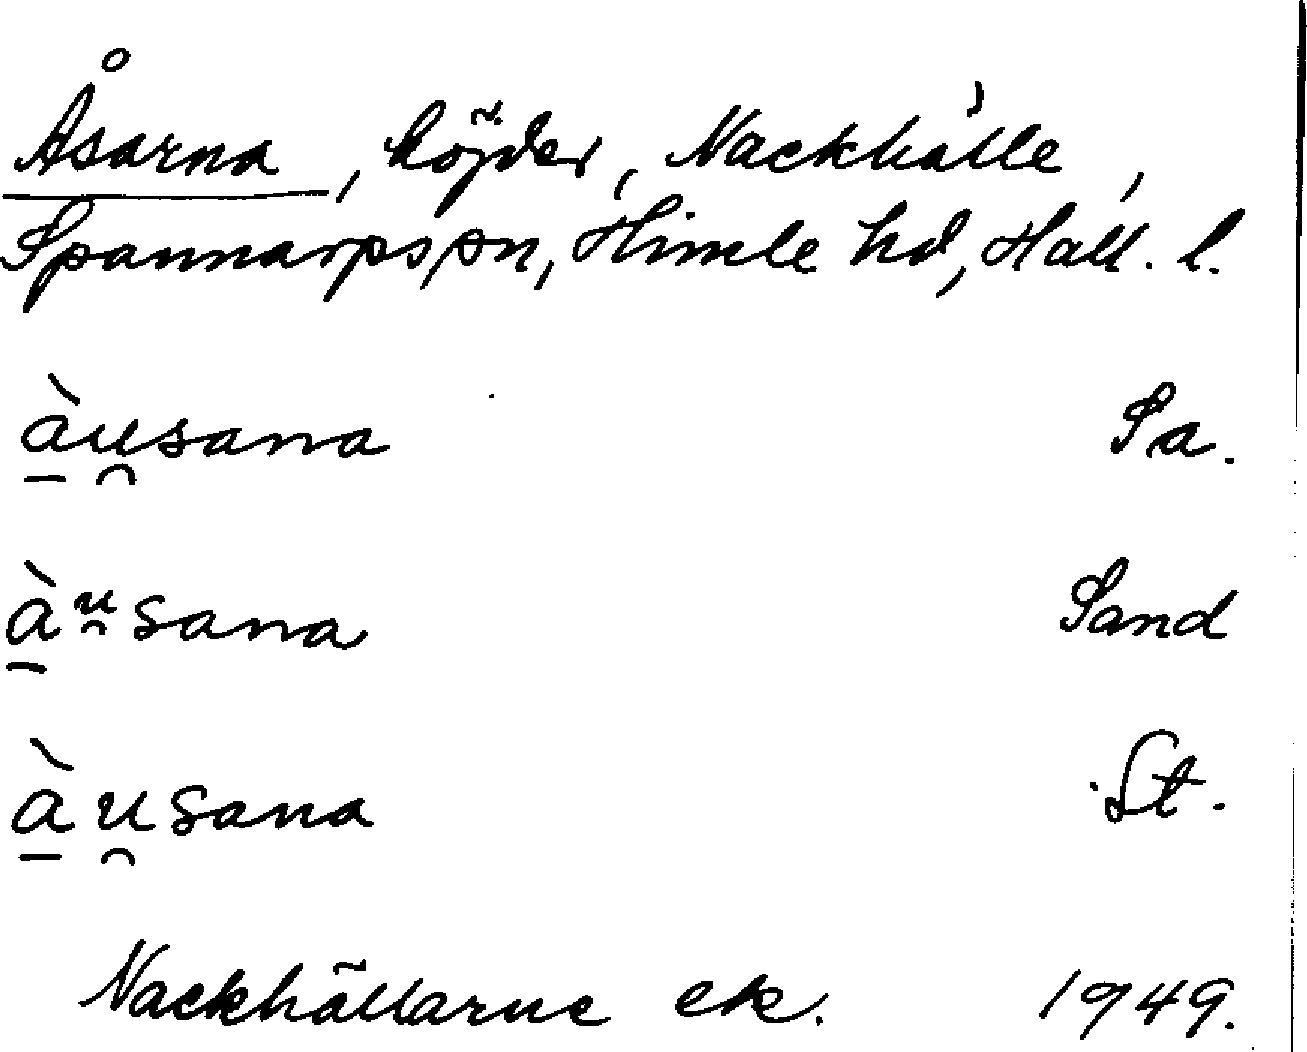 Åsarna, höjder, Nackhälle,
Spannarps sn, Himle hd, Hall. l.
à̠̖u̯sana Sa.
à̠ᵘ̯sana Sand
à̠u̯sana St.
Nackhällarne ek. 1949.